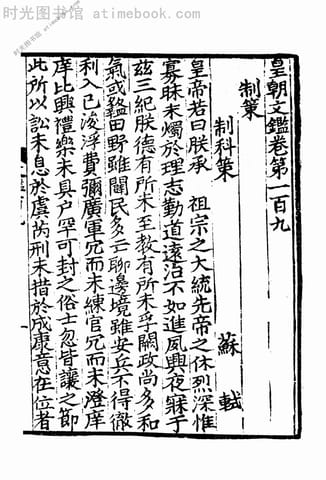 时光图书馆 - atimebook.com
皇朝文鑑卷第一百九
制策
制科策 蘇軾
皇帝若曰朕承 祖宗之大統先帝之休烈深惟
寡昧未燭於理志勤道遠治不加進夙興夜寐于
茲三紀朕德有所未至教有所未孚闕政尚多和
氣或盭田野雖闢民多亡聊邊境雖安兵不得徹
利入已浚浮費彌廣軍冗而未練官冗而未澄庠
序比興禮樂未具户罕可封之俗士忽偕讓之節
此所以訟未息於虞芮刑未措於成康意在位者